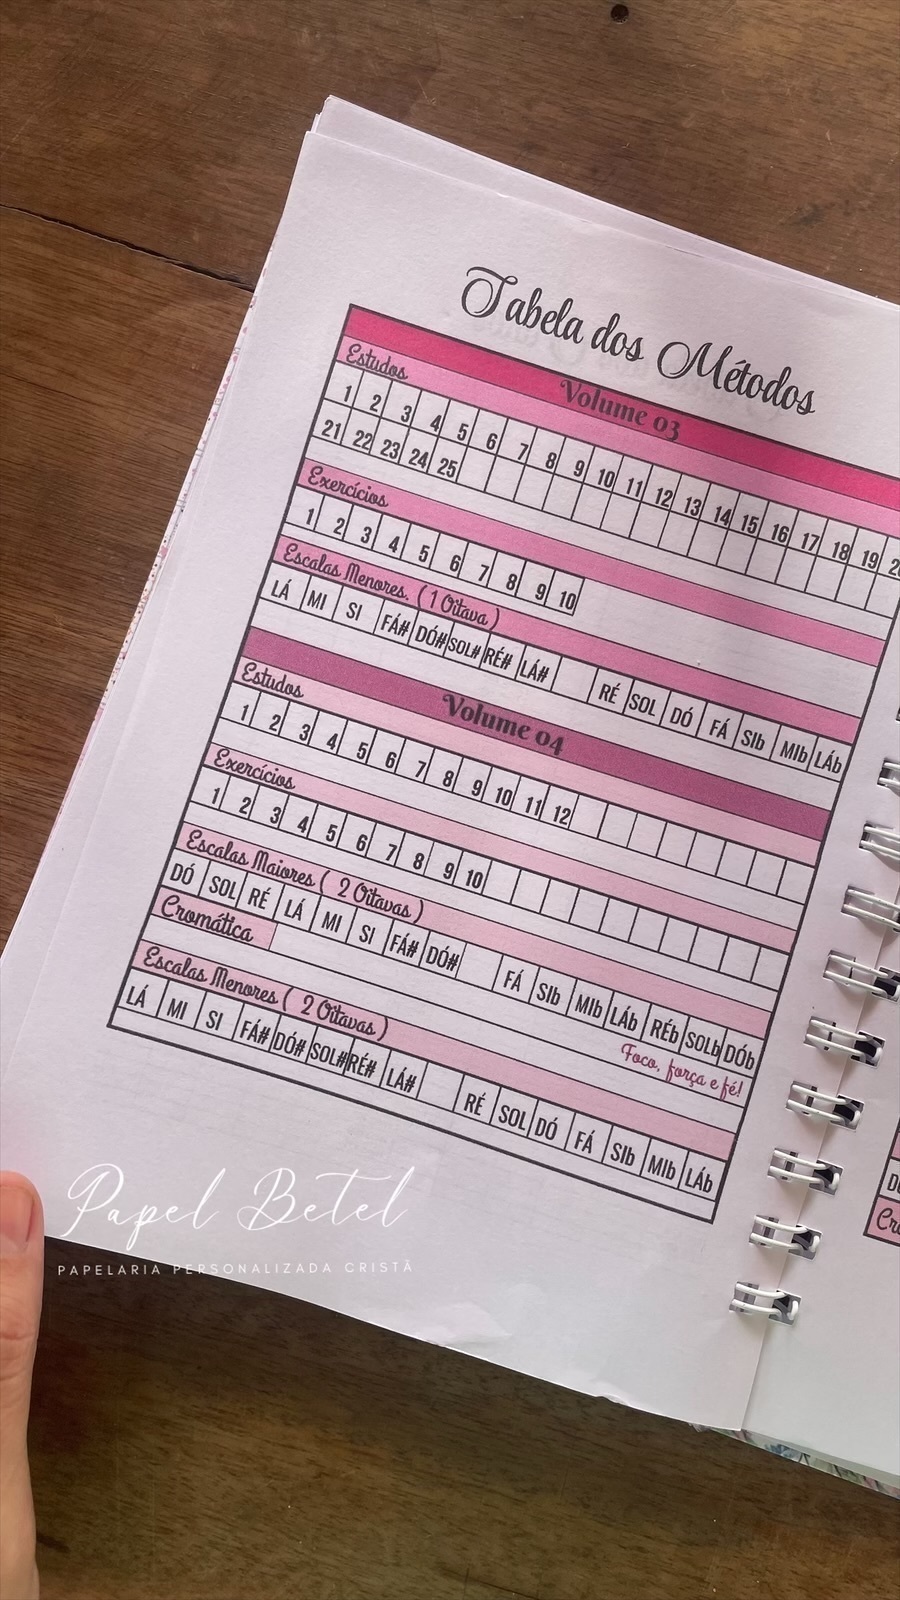 Tabela dos Métodos
Volume 03
Estudos
1 2 3 4 5 6 7 8 9 10 11 12 13 14 15 16 17 18 19
21 22 23 24 25
Exercícios
1 2 3 4 5 6 7 8 9 10
Escalas Menores. ( 1 Oitava )
LÁ MI SI FÁ# DÓ# SOL# RÉ# LÁ# RÉ SOL DÓ FÁ SIb MIb LÁb
Volume 04
Estudos
1 2 3 4 5 6 7 8 9 10 11 12
Exercícios
1 2 3 4 5 6 7 8 9 10
Escalas Maiores ( 2 Oitavas )
DÓ SOL RÉ LÁ MI SI FÁ# DÓ# FÁ SIb MIb LÁb RÉb SOLb DÓb
Cromática
Foco, força e fé!
Escalas Menores ( 2 Oitavas )
LÁ MI SI FÁ# DÓ# SOL# RÉ# LÁ# RÉ SOL DÓ FÁ SIb MIb LÁb
Papel Betel
PAPELARIA PERSONALIZADA CRISTÃ